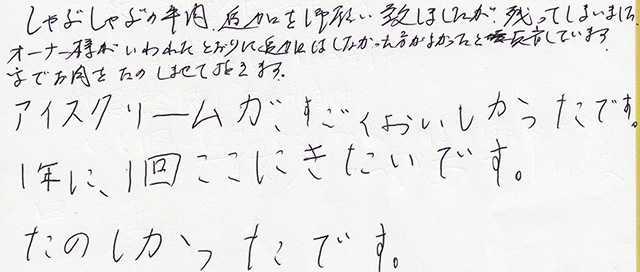 しゃぶしゃぶの牛肉、追加を御願い致しましたが、残ってしまいました。
オーナー様がいわれたとおりに追加はしなかった方がよかったと反省しています。
までお肉をたのしませて頂きます。
アイスクリームが、すごくおいしかったです。
1年に、1回ここにきたいです。
たのしかったです。